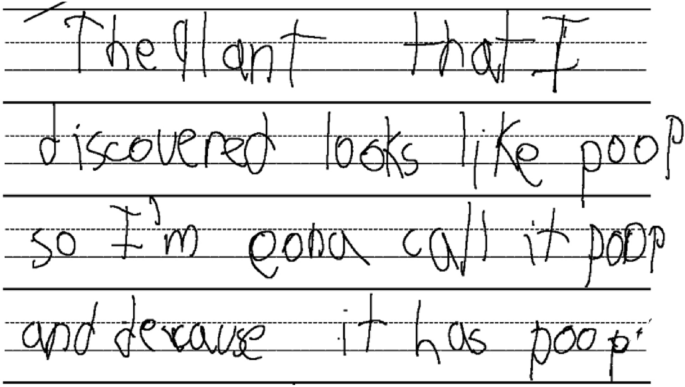 The qlant that I
discovered looks like poop
so I'm gona call it poop
and decause it has poop.